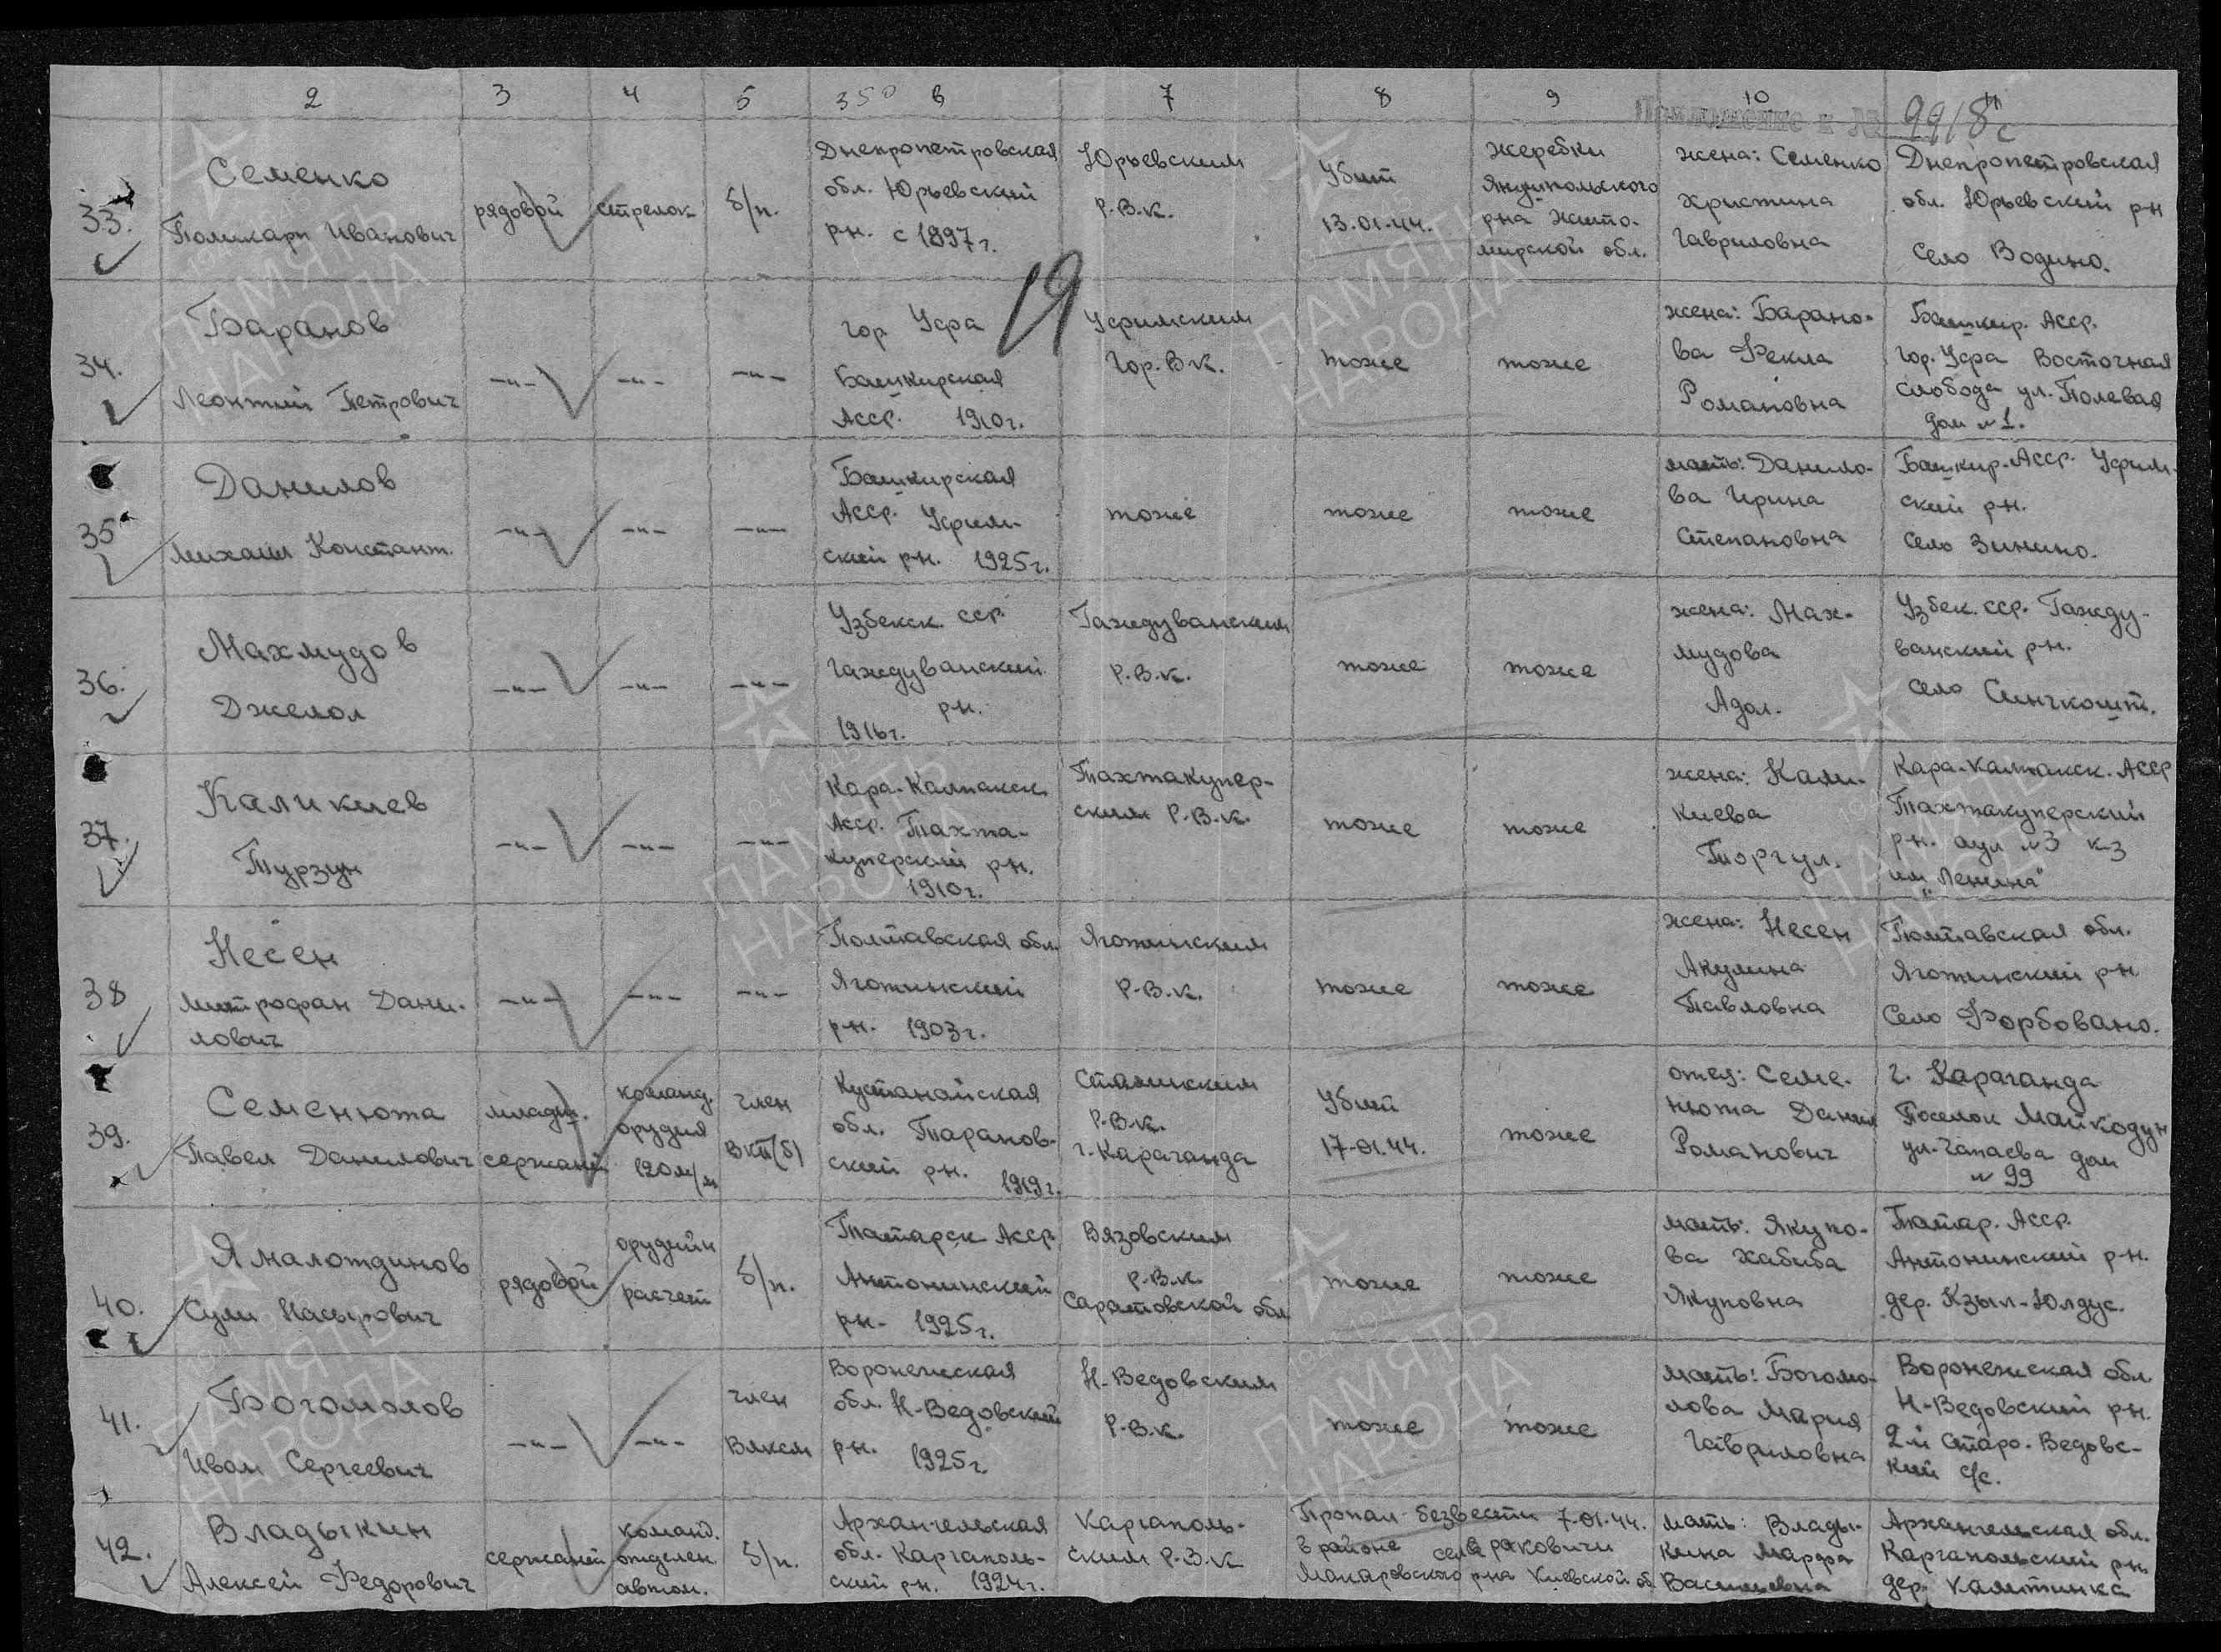 2 3 4 5 350 6 7 8 9 10 11
Приложение к № 9918с
33.
Семенко
Поликарп Иванович
рядовой
стрелок
б/п.
Днепропетровская
обл. Юрьевский
рн. с 1897г.
Юрьевским
Р.В.К.
Убит
13.01.44.
жеребки
Янушпольского
рна Жито-
мирской обл.
жена: Семенко
Христина
Гавриловна
Днепропетровская
обл. Юрьевский рн
Село Водино.
19
34.
Баранов
Леонтий Петрович
-"-
-"-
-"-
гор Уфа
Башкирская
Асср. 1910г.
Уфимским
Гор.В.К.
тоже
тоже
жена: Барано-
ва Фекла
Романовна
Башкир. Асср.
гор. Уфа Восточная
слобода ул. Полевая
дом №1.
35
Данилов
Михаил Констант.
-"-
-"-
-"-
Башкирская
Асср. Уфим-
ский рн. 1925г.
тоже
тоже
тоже
мать: Данило-
ва Ирина
Степановна
Башкир. Асср. Уфим-
ский рн.
Село Зинино.
36.
Махмудов
Джелол
-"-
-"-
-"-
Узбекск. сср.
Гаждуванский
рн.
1916г.
Гаждуванским
Р.В.К.
тоже
тоже
жена: Мах-
мудова
Адол.
Узбек. сср. Гажду-
ванский рн.
село Синчкошт.
37.
Каликиев
Турзун
-"-
-"-
-"-
Кара-Калпакск.
Асср. Тахта-
куперский рн.
1910г.
Тахтакупер-
ским Р.В.К.
тоже
тоже
жена: Кали-
киева
Торгул.
Кара-Калпакск. АССР
Тахтакуперский
рн. аул №3 кз
им „Ленина"
38
Несен
Митрофан Дани-
лович
-"-
-"-
-"-
Полтавская обл.
Яготинский
рн. 1903г.
Яготинским
Р.В.К.
тоже
тоже
жена: Несен
Акулина
Павловна
Полтавская обл.
Яготинский рн
Село Форбовано.
39.
Семенюта
Павел Данилович
младш.
сержант
команд.
орудия
120м/м
член
ВКП(б)
Кустанайская
обл. Таранов-
ский рн. 1919г.
Сталинским
Р.В.К.
г. Караганда
Убит
17.01.44.
тоже
отец: Семе-
нюта Данил
Романович
г. Караганда
Поселок Майкодун
ул. Чапаева дом
№ 99
40.
Ямалотдинов
Сули Насырович
рядовой
орудийн
расчет
б/п.
Татарск Асср
Актонинский
рн. 1925г.
Вязовским
Р.В.К.
Саратовской обл
тоже
тоже
мать: Якупо-
ва Хабиба
Якуповна
Татар. Асср.
Актонинский рн.
дер. Кзыл-Юлдус.
41.
Богомолов
Иван Сергеевич
-"-
-"-
член
Влксм
Воронежская
обл. Н-Ведовский
рн. 1925г.
Н-Ведовским
Р.В.К.
тоже
тоже
мать: Богомо-
лова Мария
Гавриловна
Воронежская обл.
Н-Ведовский рн.
2-й Старо-Ведовс-
кий с/с.
42.
Владыкин
Алексей Федорович
сержант
команд.
отделен.
автом.
б/п.
Архангельская
обл. Каргаполь-
ский рн. 1924г.
Каргаполь-
ским Р.В.К
Пропал безвести 7.01.44.
в районе села раковичи
Макаровского рна Киевской об.
мать: Влады-
кина Марфа
Васильевна
Архангельская обл.
Каргапольский рн
дер. Калитинка
ПАМЯТЬ
НАРОДА